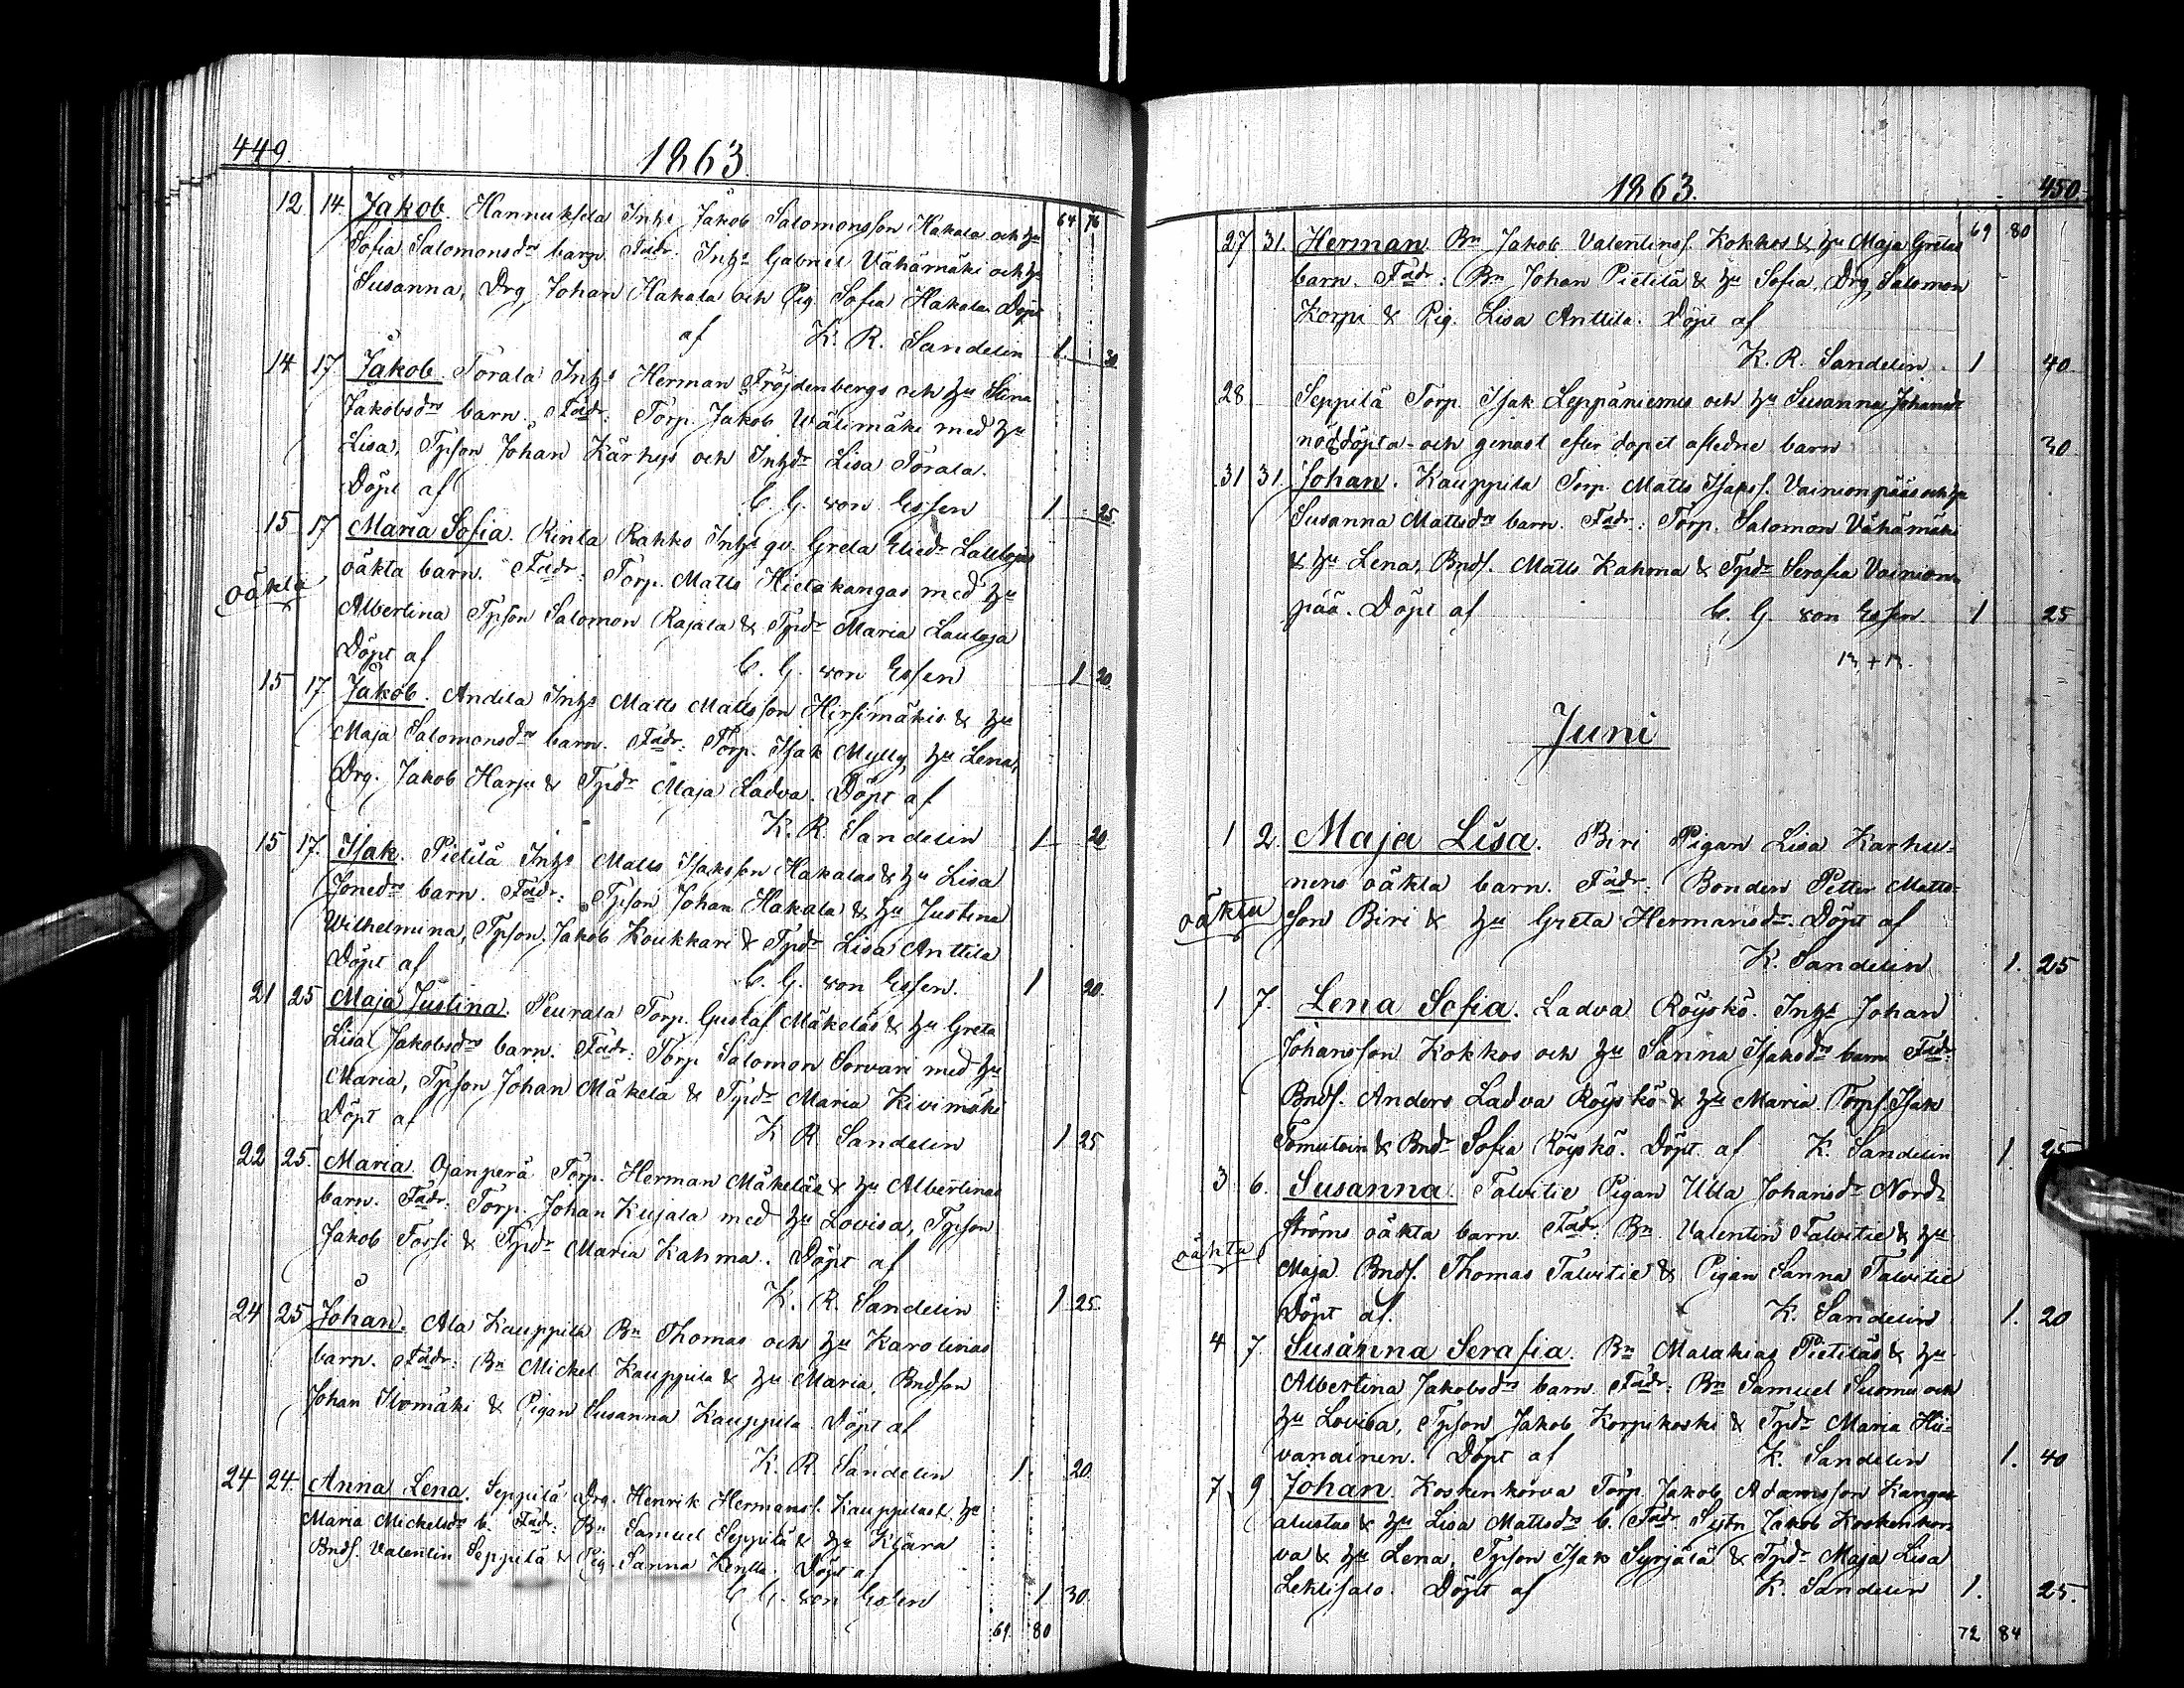 449.
1863.
64 76
12 14. Jakob. Hannuksela Inhs Jakob Salomonsson Hakala och hu
Sofia Salomonsdrs barn. Fadr: Inhs Gabriel Vähämäki och hu
Susanna, Drg Johan Hakala och Pig. Sofia Hakala. Döpt
af K. R. Sandelin 1. 30
14 17. Jakob. Torala Inhs Herman Fröjdenbergs och hu Stina
Jakobsdrs barn. Fadr: Torp. Jakob Wälimäki med hu
Lisa, Tpson Johan Kärhys och Inhdr Lisa Torala.
Döpt af C. G. von Essen 1 25
15 17 Maria Sofia. Rinta Rahko Inhs qv. Greta Eliedr
oäkta barn. Fadr: Torp. Matts Hietakangas med hu
oäkta
Albertina Tpson Salomon Rajala & Tpdr Maria Lauloja
Döpt af C. G. von Essen 1 20
15 17. Jakob. Andila Inhs Matts Mattsson Hirsimäkis & hu
Maja Salomonsdrs barn. Fadr: Torp. Isak Mylly, hu Lena,
Drg. Jakob Harju & Tpdr Maja Ladva. Döpt af
K. R. Sandelin 1 20
15 17. Isak. Pietilä Inhs Matts Isaksson Hakalas & hu Lisa
Jonedrs barn. Fadr: Tpson Johan Hakala & hu Justina
Wilhelmina, Tpson. Jakob Koukkari & Tpdr Lisa Anttila
Döpt af C. G. von Essen. 1 20.
21 25 Maja Justina. Peurala Torp. Gustaf Mäkeläs & hu Greta
Lisa Jakobsdrs barn. Fadr: Torp Salomon Sorvari med hu
Maria, Tpson Johan Mäkelä & Tpdr Maria Kivimäki
Döpt af K R. Sandelin 1 25
22 25. Maria. Ojanperä Torp. Herman Mäkeläs & hu Albertinas
barn. Fadr: Torp. Johan Kujala med hu Lovisa, Tpson
Jakob Torsi & Tpdr Maria Kahma. Döpt af
K. R. Sandelin 1 25.
24 25 Johan. Ala Kauppila Bn Thomas och hu Karolinas
barn. Fadr: Bn Mickel Kauppila & hu Maria, Bndson
Johan Ilvomäki & Pigan Susanna Kauppila. Döpt af
K. R. Sandelin 1. 20.
24 24. Anna Lena. Seppilä Drg. Henrik Hermanss. hu
Maria Mickelsdrs b. Fadr: Bn Samuel Seppilä & hu Klara
Bnds. Valentin Seppilä & Pig. Sanna Döpt af
C G. von Essen 1 30.
69. 80
1863. 450.
69 80
27 31. Herman. Bn Jakob Valentins. Kokkos & hu Maja Gretas
barn. Fadr: Bn Johan Pietilä & hu Sofia, Drg Salomon
Korpi & Pig. Lisa Anttila. Döpt af
K. R. Sandelin. 1 40
28 Seppilä Torp. Isak Leppäniemis och hu Susanna Johansdr
nöddöpta och genast efter dopet aflidne barn 30
31 31. Johan. Kauppila Torp. Matts Isakss. Vainionpääs och hu
Susanna Mattsdrs barn. Fadr: Torp. Salomon Vähämäki
& hu Lena, Bnds. Matts Kahma & Tpdr Serafia Vainion-
pää. Döpt af C. G. von Essen. 1 25
Juni
1 2. Maja Lisa. Biri Pigan Lisa Karhu-
nens oäkta barn. Fadr: Bonden Petter Matts-
oäkta
son Biri & hu Greta Hermansdr. Döpt af
K. Sandelin 1. 25
1 7. Lena Sofia. Ladva Röyskö. Inhs Johan
Johansson Kokkos och hu Sanna Isaksdrs barn Fadr:
Bnds. Anders Ladva Röyskö & hu Maria. Torps. Isak
& Bndr Sofia Röyskö. Döpt af K. Sandelin 1. 25
3 6. Susanna. Talvitie Pigan Ulla Johansdr Nord-
ströms oäkta barn. Fadr: Bn. Valentin Talvitie & hu
oäkta
Maja. Bnds. Thomas Talvitie & Pigan Sanna Talvitie
Döpt af. K. Sandelin 1. 20
4 7. Susanna Serafia. Bn Malakias Pietiläs & hu
Albertina Jakobsdrs barn. Fadr: Bn Samuel Suomu och
hu Lovisa, Tpson Jakob Korpikoski & Tpdr Maria Hii-
vanainen. Döpt af K. Sandelin 1. 40
7 9 Johan. Koskenkorva Torp. Jakob Adamsson Kangas-
alustas & hu Lisa Mattsdrs b. Fadr. Jakob Koskenkor-
va & hu Lena, Tpson Isak Syrjälä & Tpdr Maja Lisa
Lehtisalo. Döpt af K. Sandelin 1. 25.
72 84